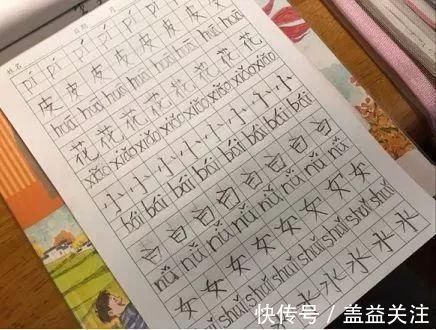 姓名
pí pí pí pí pí pí pí pí
皮 皮 皮 皮 皮 皮 皮 皮
huā huā huā huā huā huā huā huā
花 花 花 花 花 花 花 花
xiǎo xiǎo xiǎo xiǎo xiǎo xiǎo xiǎo xiǎo
小 小 小 小 小 小 小 小
bái bái bái bái bái bái bái bái
白 白 白 白 白 白 白 白
nǚ nǚ nǚ nǚ nǚ nǚ nǚ nǚ
女 女 女 女 女 女 女 女
shuǐ shuǐ shuǐ shuǐ shuǐ shuǐ shuǐ
水 水 水 水 水
快传号 / 盖益关注